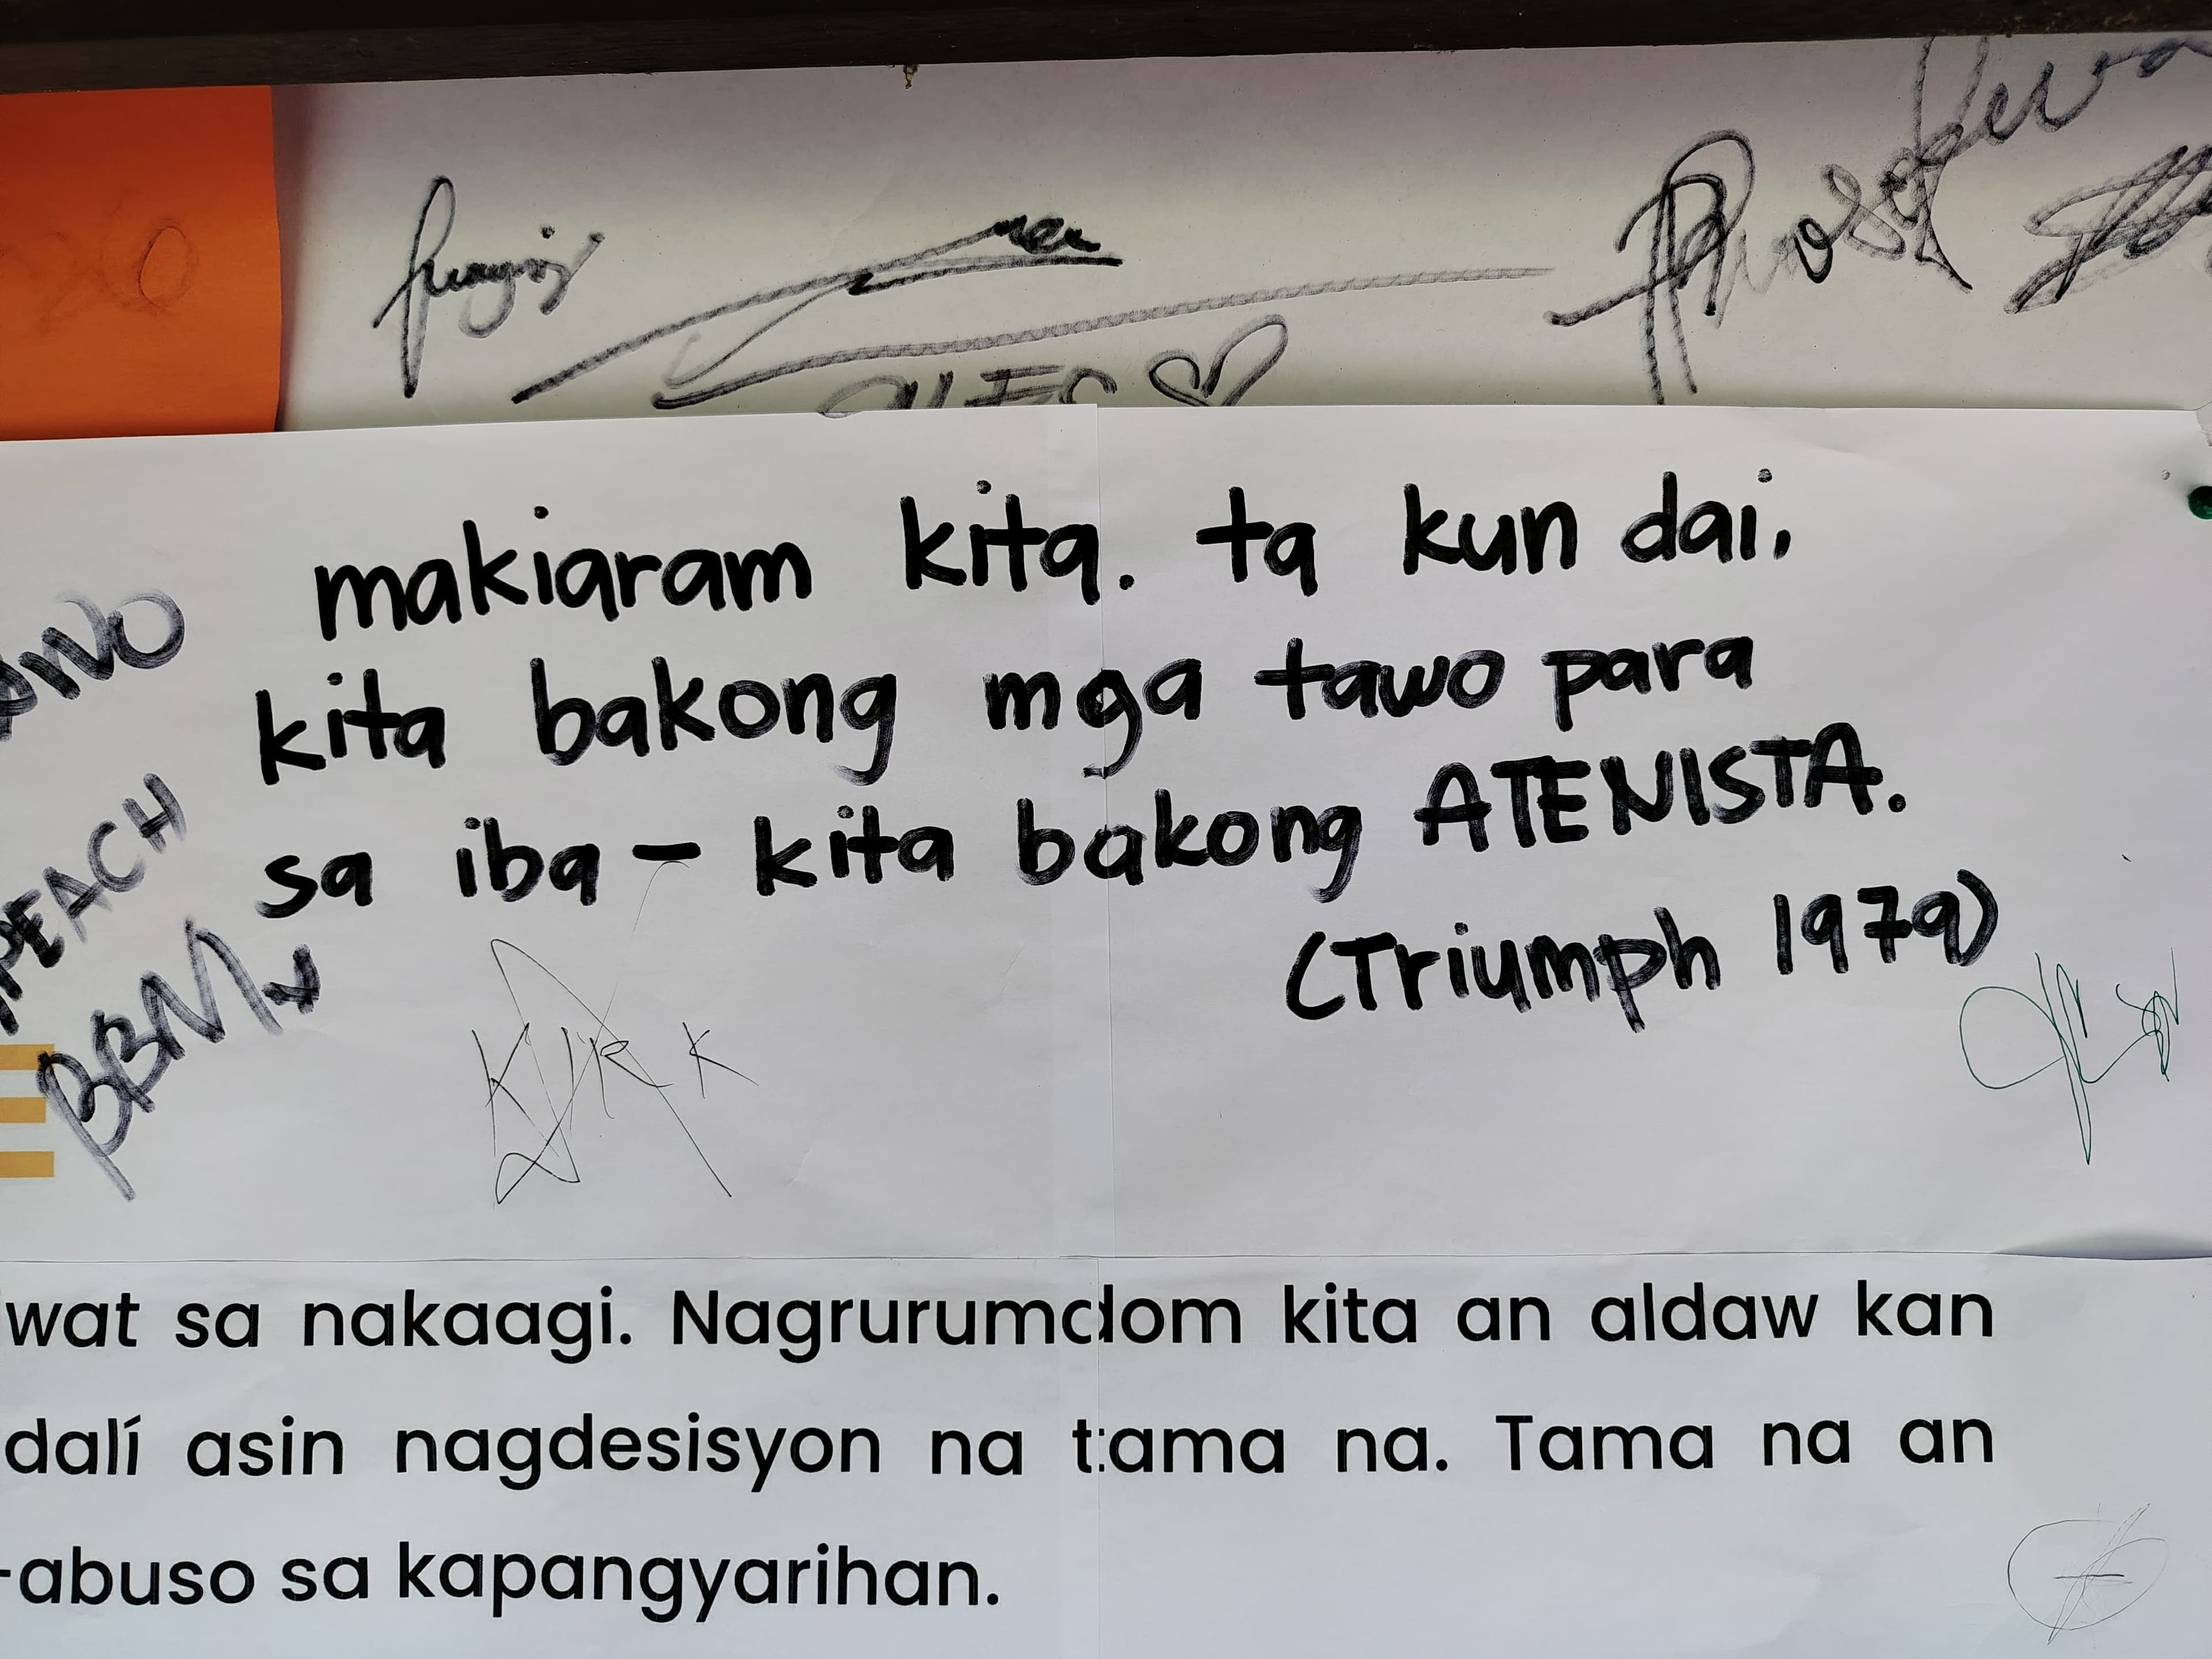 makiaram kita. ta kun dai,
kita bakong mga tawo para
sa iba - kita bakong ATENISTA.
(Triumph 1979)
PEACH
BBM
KIRK
wat sa nakaagi. Nagrurumdom kita an aldaw kan
dalí asin nagdesisyon na tama na. Tama na an
-abuso sa kapangyarihan.